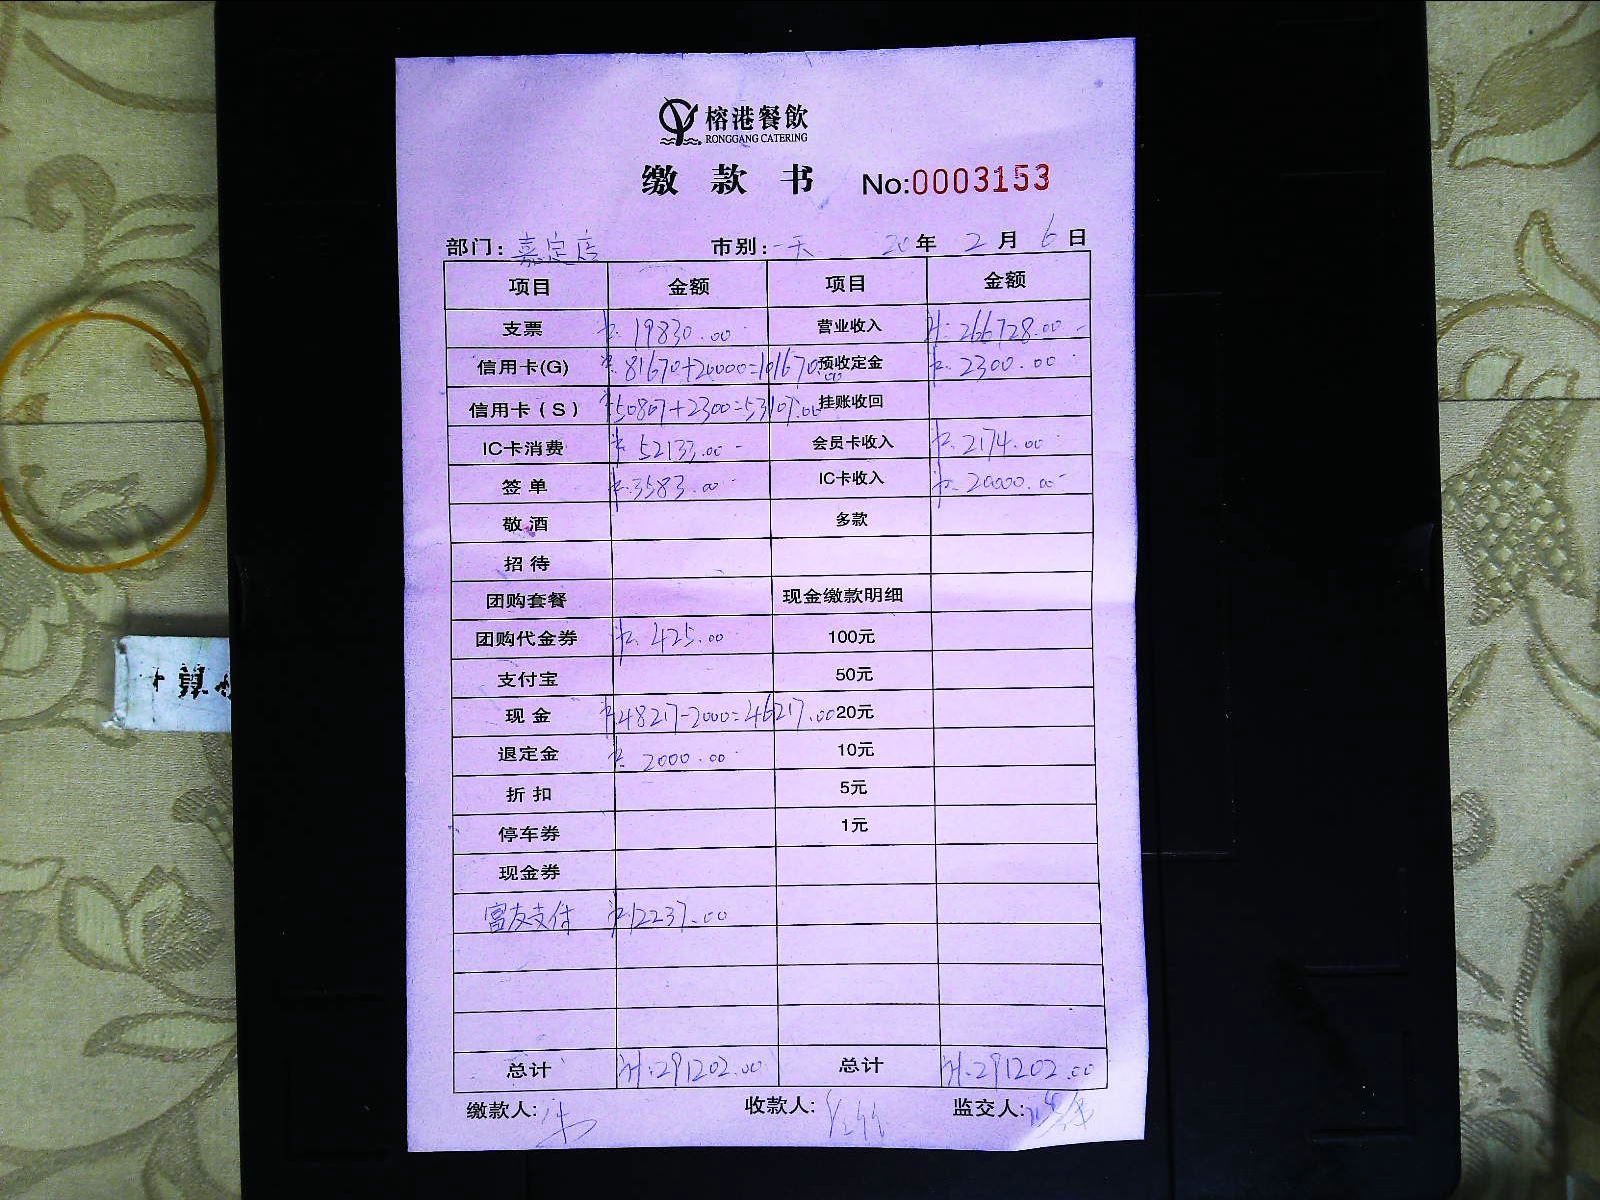 榕港餐飲
RONGGANG CATERING
缴款书 No:0003153
部门: 嘉定店 市别: 一天 20年 2月 6日
项目 金额 项目 金额
支票 19830.00 营业收入 266728.00
信用卡(G) 81670+20000=101670.00 预收定金 2300.00
信用卡(S) 50807+2300=53107.00 挂账收回
IC卡消费 52133.00 会员卡收入 2174.00
签单 3583.00 IC卡收入 20000.00
敬酒 多款
招待
团购套餐 现金缴款明细
团购代金券 425.00 100元
支付宝 50元
现金 48217-2000=46217.00 20元
退定金 2000.00 10元
折扣 5元
停车券 1元
现金券
富友支付 12237.00
总计 291202.00 总计 291202.00
缴款人: 收款人: 监交人: